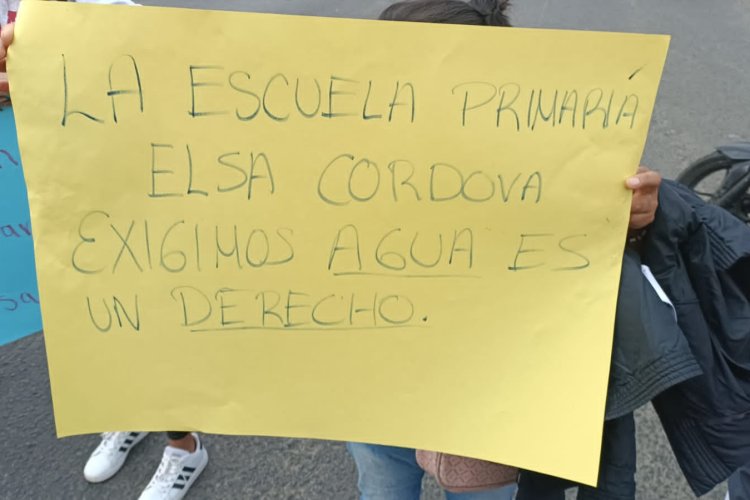 LA ESCUELA PRIMARIÁ
ELSA CORDOVA
EXIGIMOS AGUA ES
UN DERECHO.